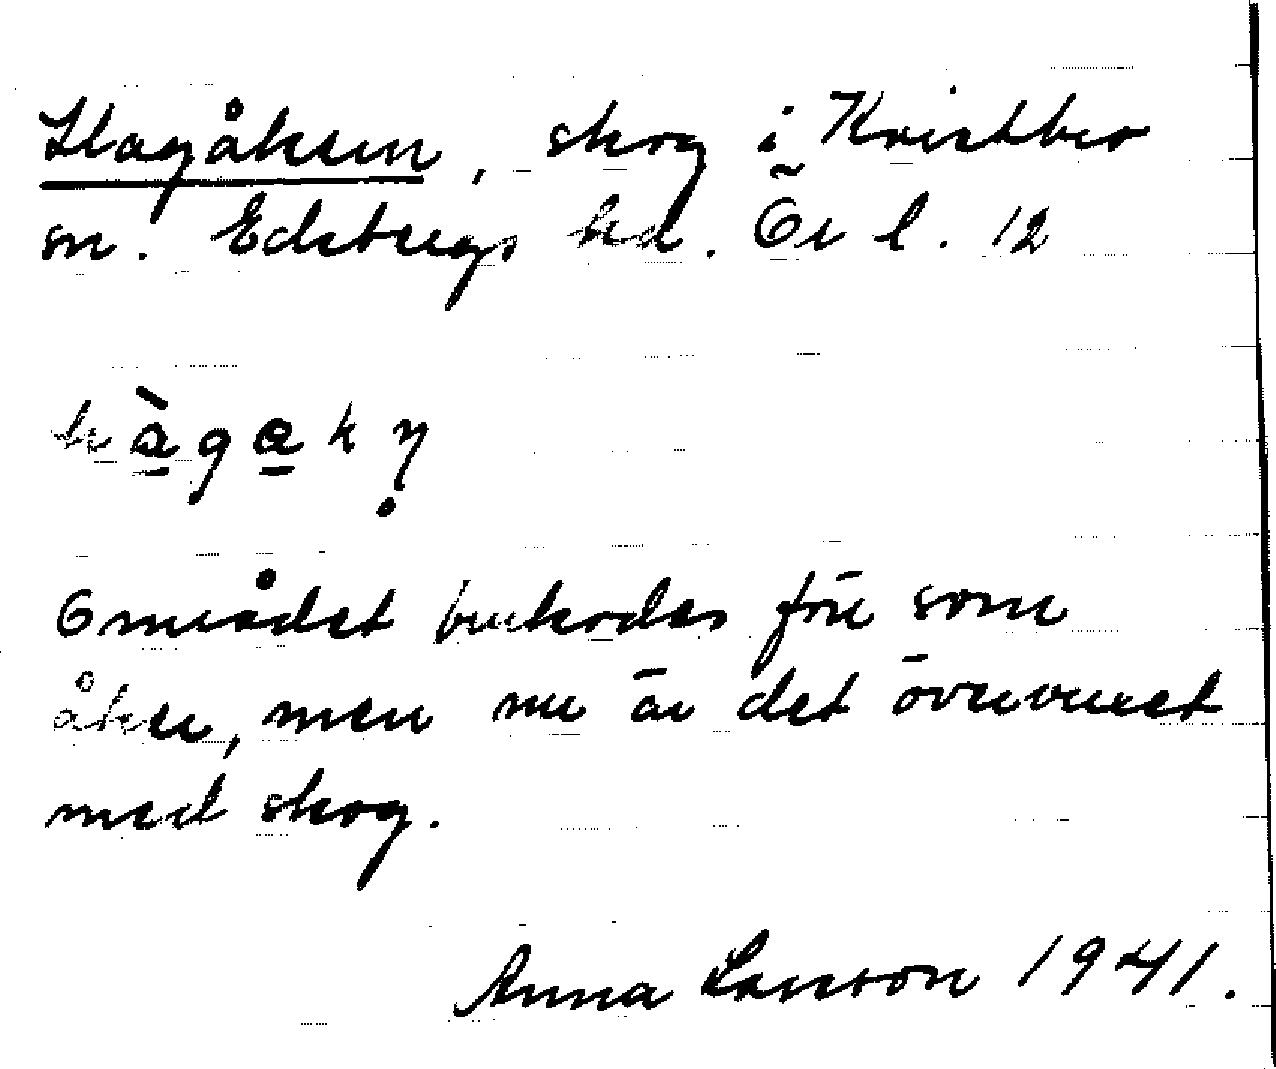 Hagåkern, skog i Kvistbro
sn. Edsbergs hd. Ör l. 12
Området brukades förr som
åker, men nu är det övervuxet
med skog.
Anna Larsson 1941.